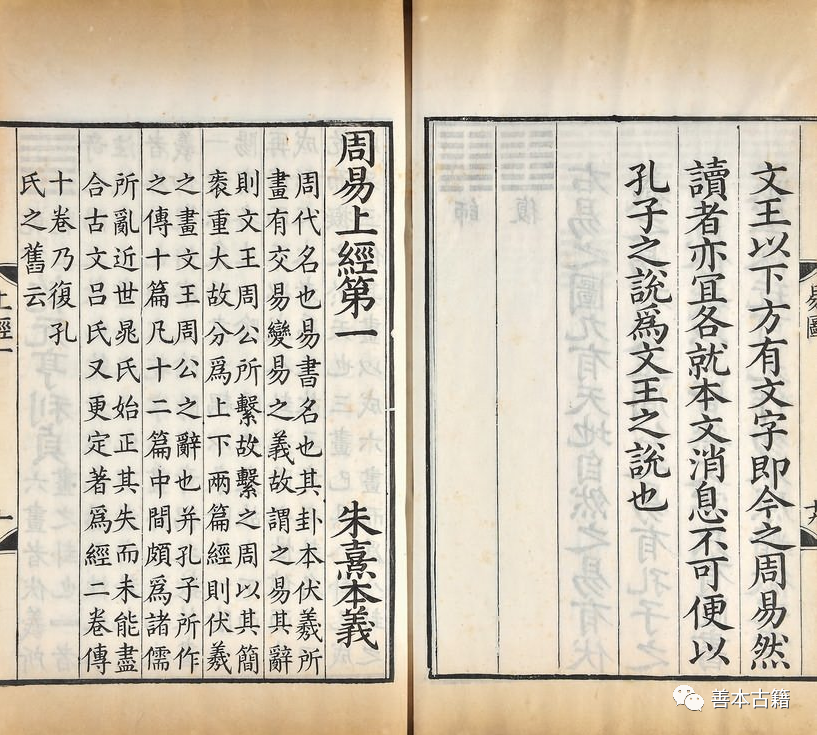 文王以下方有文字即今之周易然
讀者亦宜各就本文消息不可便以
孔子之說爲文王之說也
周易上經第一 朱熹本義
周代名也易書名也其卦本伏羲所
畫有交易變易之義故謂之易其辭
則文王周公所繫故繫之周以其簡
袠重大故分爲上下兩篇經則伏羲
之畫文王周公之辭也并孔子所作
之傳十篇凡十二篇中間頗爲諸儒
所亂近世晁氏始正其失而未能盡
合古文呂氏又更定著爲經二卷傳
十卷乃復孔
氏之舊云
易圖
上經一
善本古籍